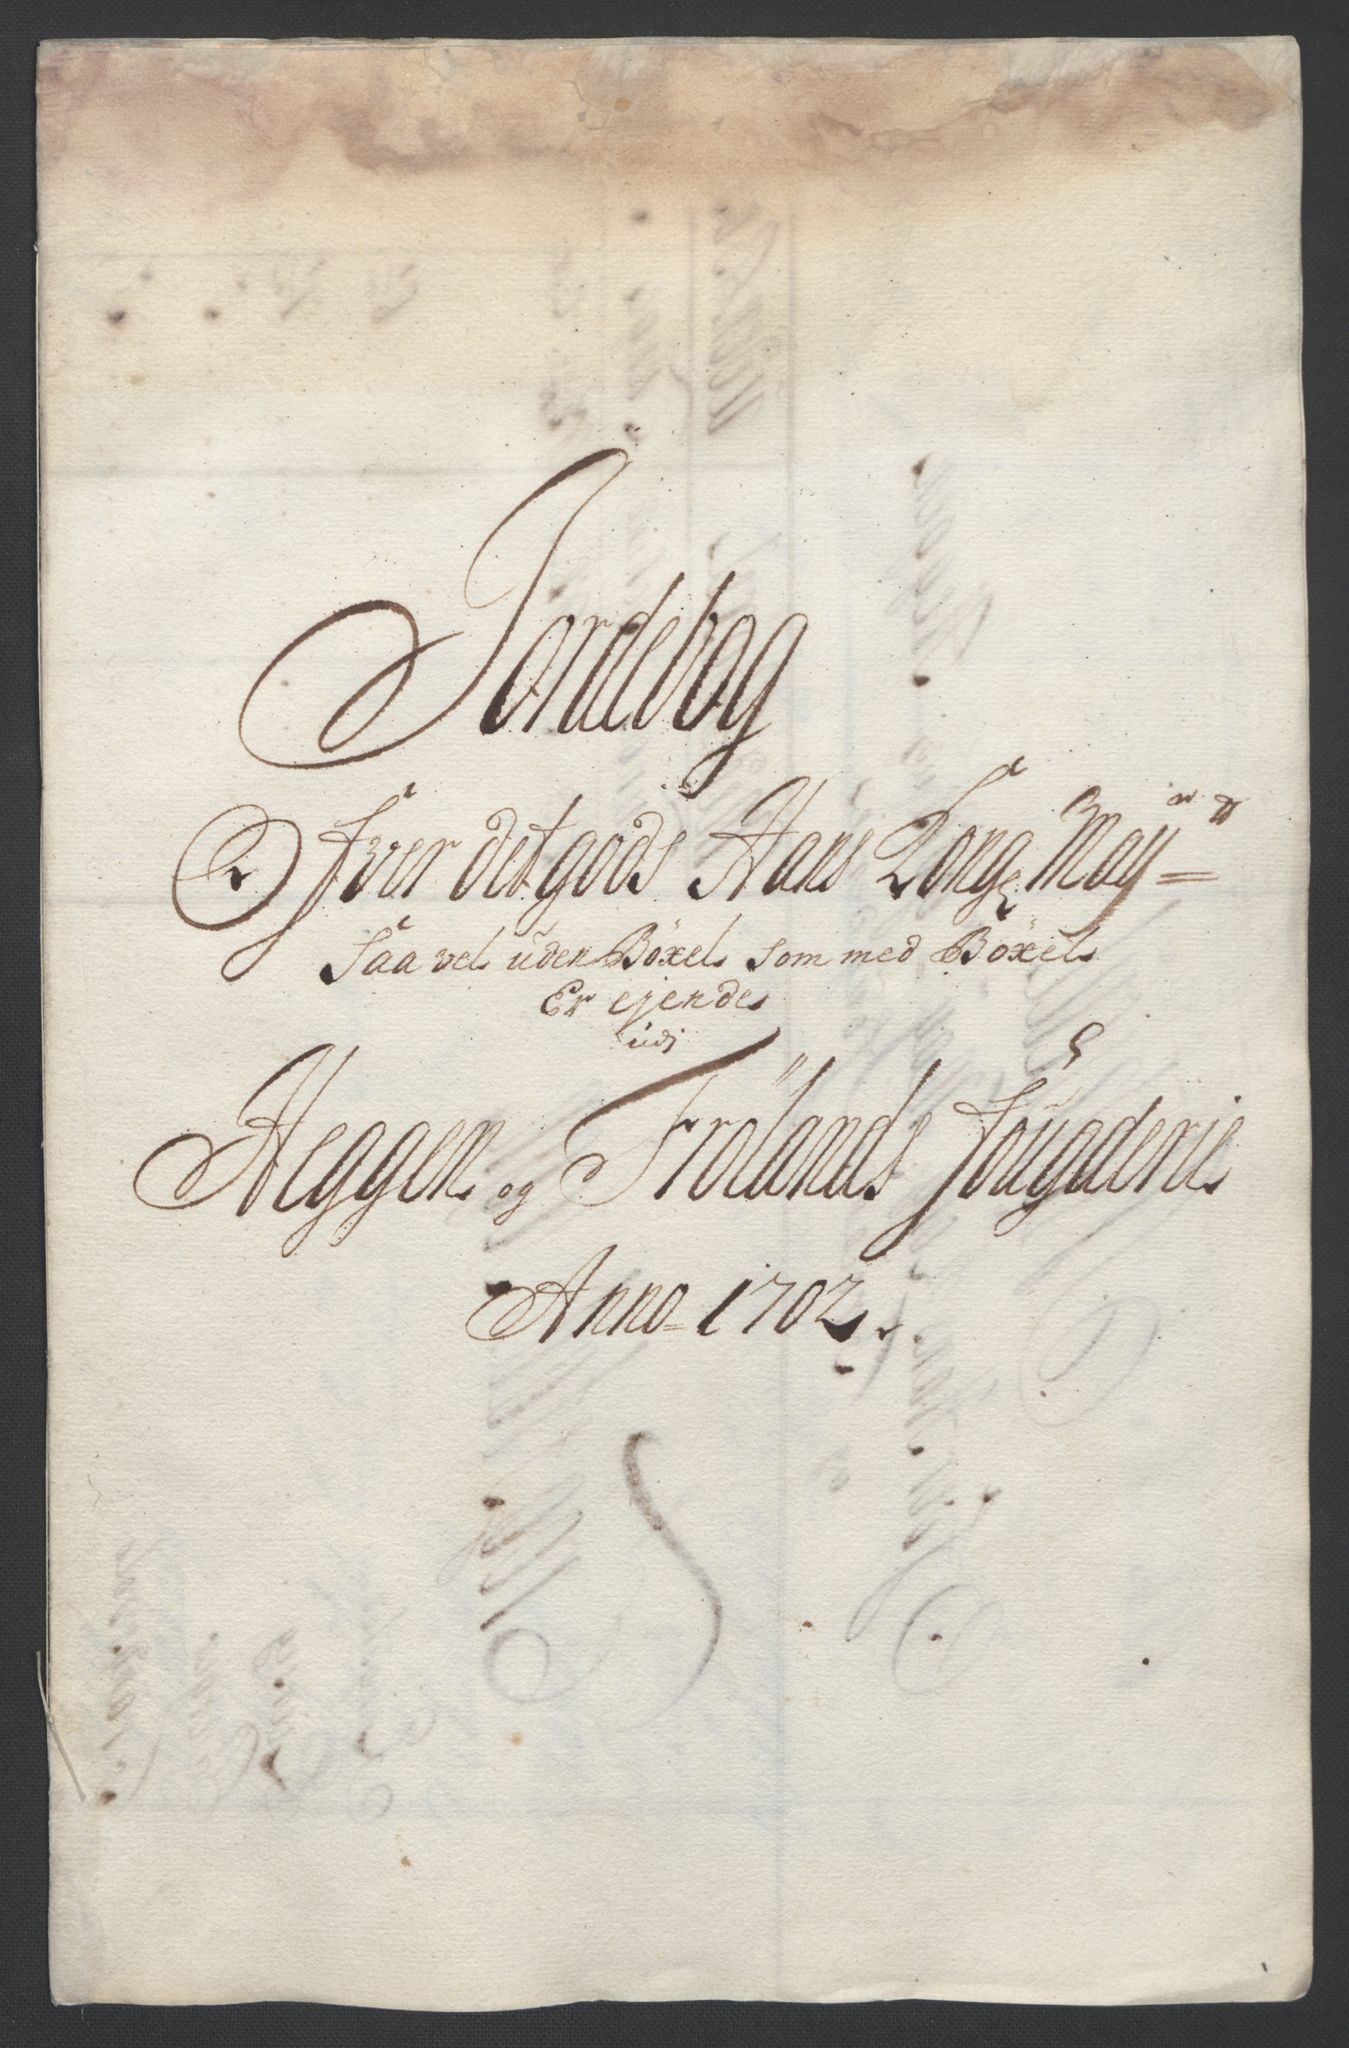 Jordebog
Ofver det gods Hans Kong. May.tz
Saa vel uden Böxel som med Böxel
Er ejende
udj
Heggen og Frölands fougderie
Anno 1702.